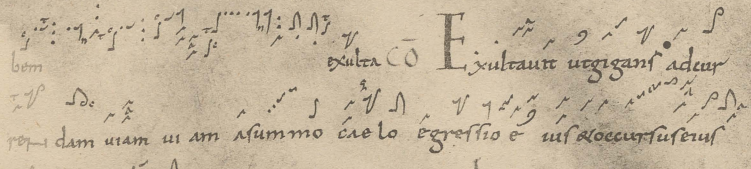 bem exulta CŌ Exultauit utgigans adcur
rendam uiam ui am asummo caelo egressio e iusæoccursuseius